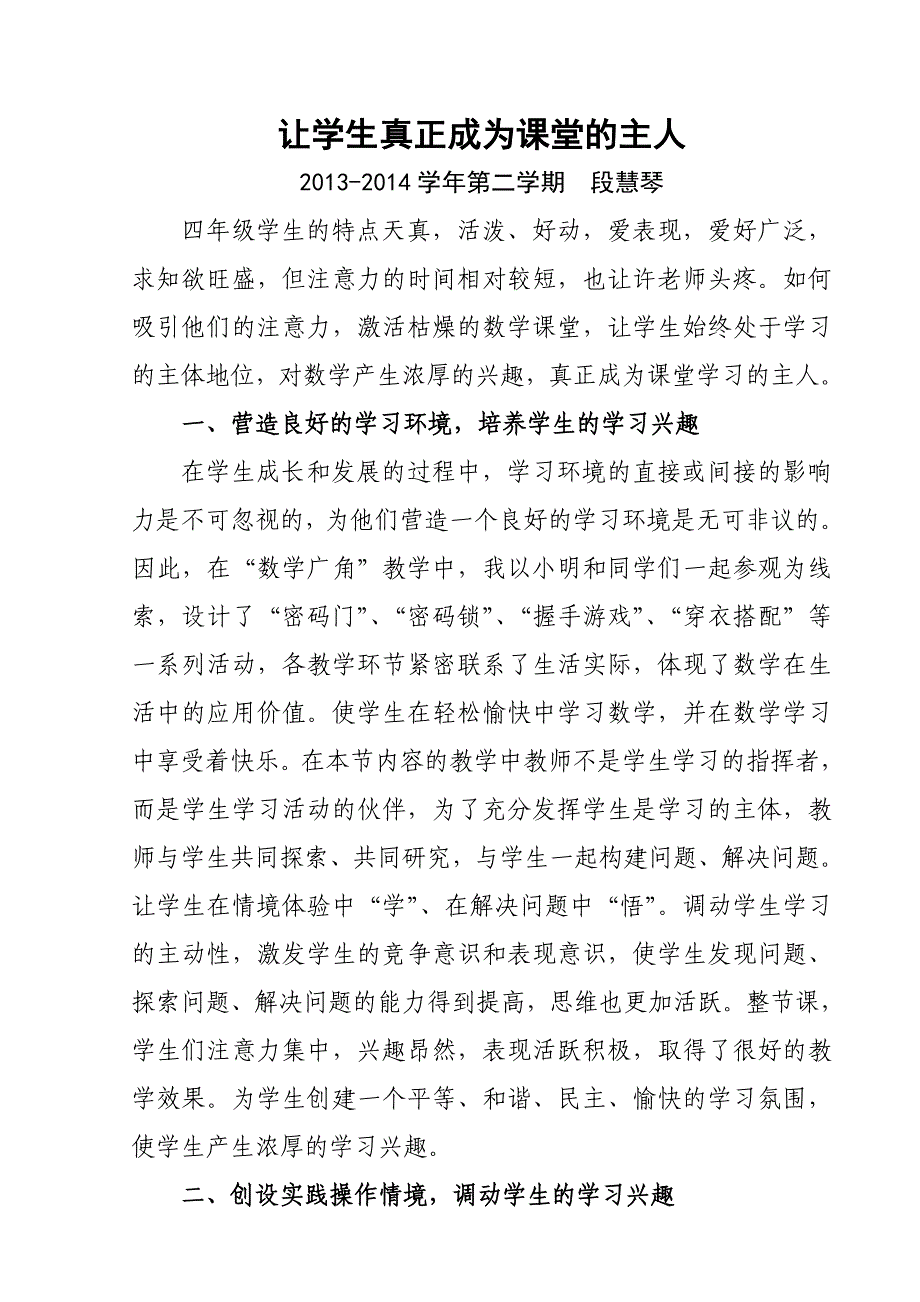 让学生真正成为课堂的主人
2013-2014学年第二学期 段慧琴
四年级学生的特点天真，活泼、好动，爱表现，爱好广泛，
求知欲旺盛，但注意力的时间相对较短，也让许老师头疼。如何
吸引他们的注意力，激活枯燥的数学课堂，让学生始终处于学习
的主体地位，对数学产生浓厚的兴趣，真正成为课堂学习的主人。
一、营造良好的学习环境，培养学生的学习兴趣
在学生成长和发展的过程中，学习环境的直接或间接的影响
力是不可忽视的，为他们营造一个良好的学习环境是无可非议的。
因此，在“数学广角”教学中，我以小明和同学们一起参观为线
索，设计了“密码门”、“密码锁”、“握手游戏”、“穿衣搭配”等
一系列活动，各教学环节紧密联系了生活实际，体现了数学在生
活中的应用价值。使学生在轻松愉快中学习数学，并在数学学习
中享受着快乐。在本节内容的教学中教师不是学生学习的指挥者，
而是学生学习活动的伙伴，为了充分发挥学生是学习的主体，教
师与学生共同探索、共同研究，与学生一起构建问题、解决问题。
让学生在情境体验中“学”、在解决问题中“悟”。调动学生学习
的主动性，激发学生的竞争意识和表现意识，使学生发现问题、
探索问题、解决问题的能力得到提高，思维也更加活跃。整节课，
学生们注意力集中，兴趣昂然，表现活跃积极，取得了很好的教
学效果。为学生创建一个平等、和谐、民主、愉快的学习氛围，
使学生产生浓厚的学习兴趣。
二、创设实践操作情境，调动学生的学习兴趣